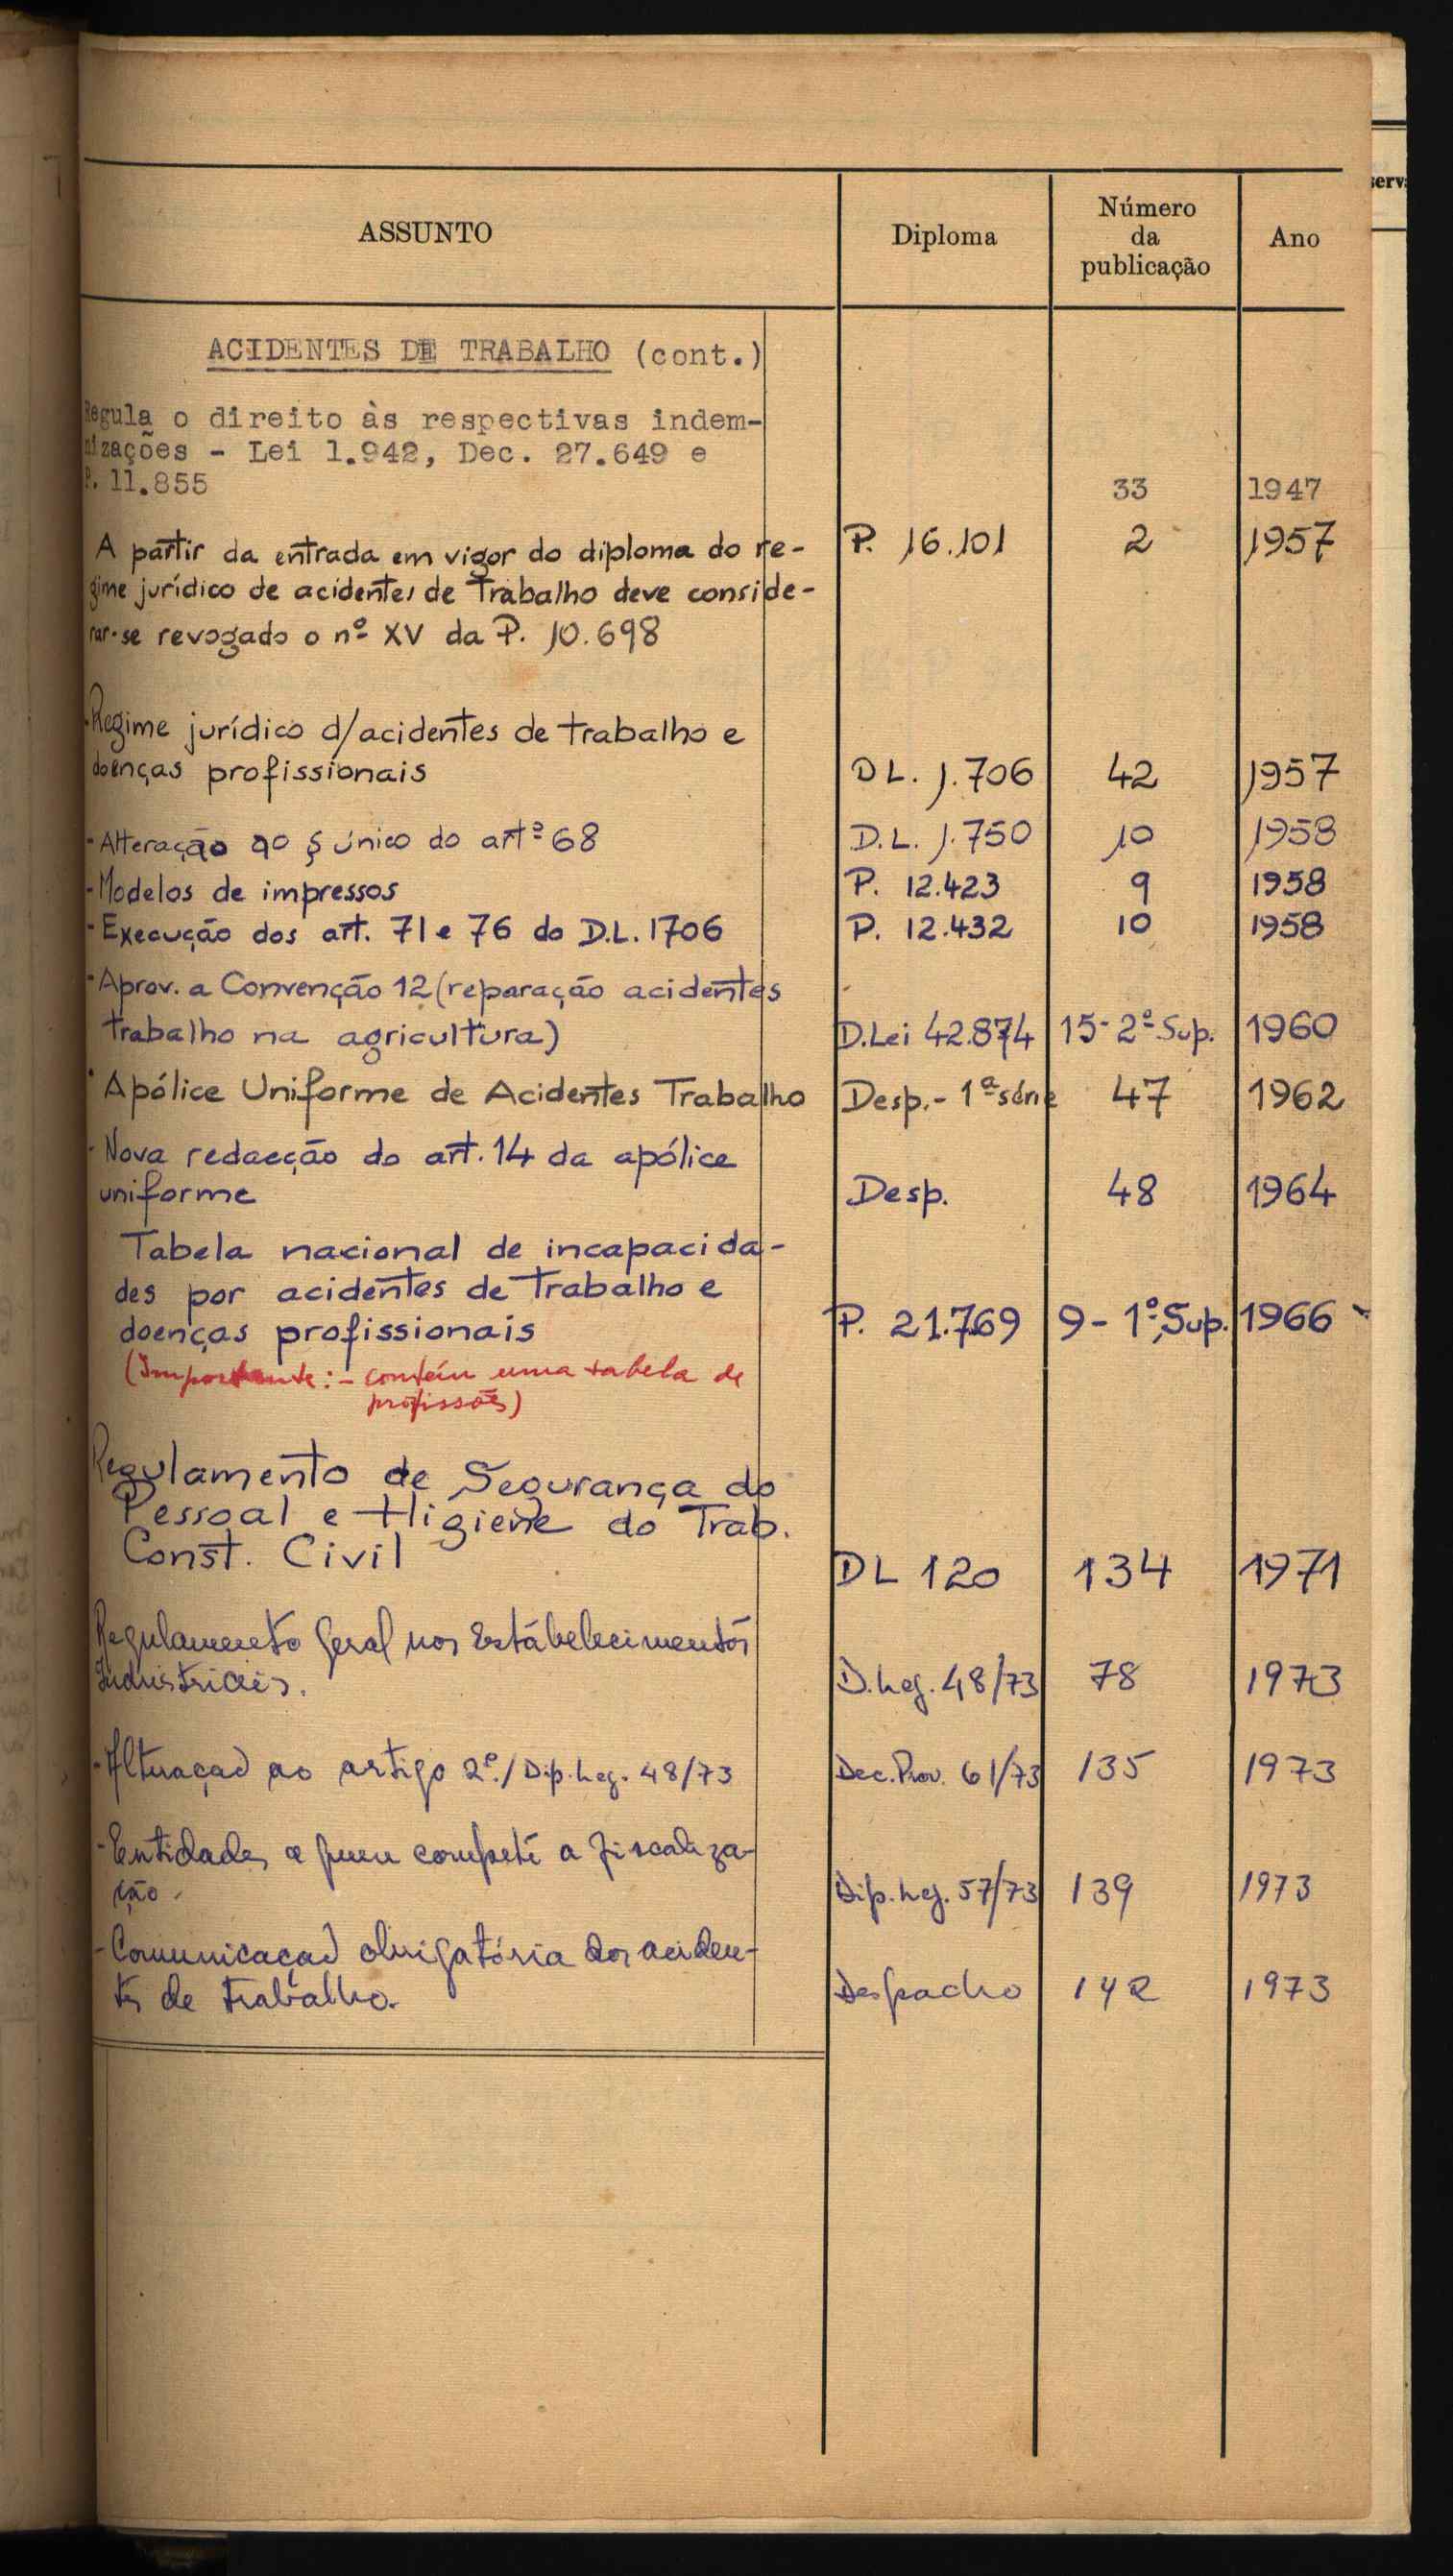 ASSUNTO Diploma Número da publicação Ano
ACIDENTES DE TRABALHO (cont.)
Regula o direito às respectivas indem-
nizações - Lei 1.942, Dec. 27.649 e
P. 11.855 33 1947
A partir da entrada em vigor do diploma do re- P. 16.101 2 1957
gime jurídico de acidentes de Trabalho deve conside-
rar-se revogado o nº XV da P. 10.698
-Regime jurídico d/acidentes de trabalho e
doenças profissionais DL. 1.706 42 1957
-Alteração ao § único do artº 68 D.L. 1.750 10 1958
-Modelos de impressos P. 12.423 9 1958
-Execução dos art. 71 e 76 do D.L. 1706 P. 12.432 10 1958
-Aprov. a Convenção 12 (reparação acidentes
trabalho na agricultura) D.Lei 42.874 15-2º Sup. 1960
-Apólice Uniforme de Acidentes Trabalho Desp.- 1ª série 47 1962
-Nova redacção do art. 14 da apólice
uniforme Desp. 48 1964
Tabela nacional de incapacida-
des por acidentes de Trabalho e
doenças profissionais P. 21.769 9-1º Sup. 1966
(Importante:- contém uma tabela de
profissões)
Regulamento de Segurança do
Pessoal e Higiene do Trab.
Const. Civil DL 120 134 1971
Regulamento Geral nos Estabelecimentos
Industriais. D.Leg. 48/73 78 1973
-Alteração ao artigo 2º./Dip.Leg. 48/73 Dec.Prov. 61/73 135 1973
-Entidades a quem compete a fiscaliza-
ção. Dip.Leg. 57/73 139 1973
-Comunicação obrigatória dos aciden-
tes de trabalho. Despacho 142 1973
serv